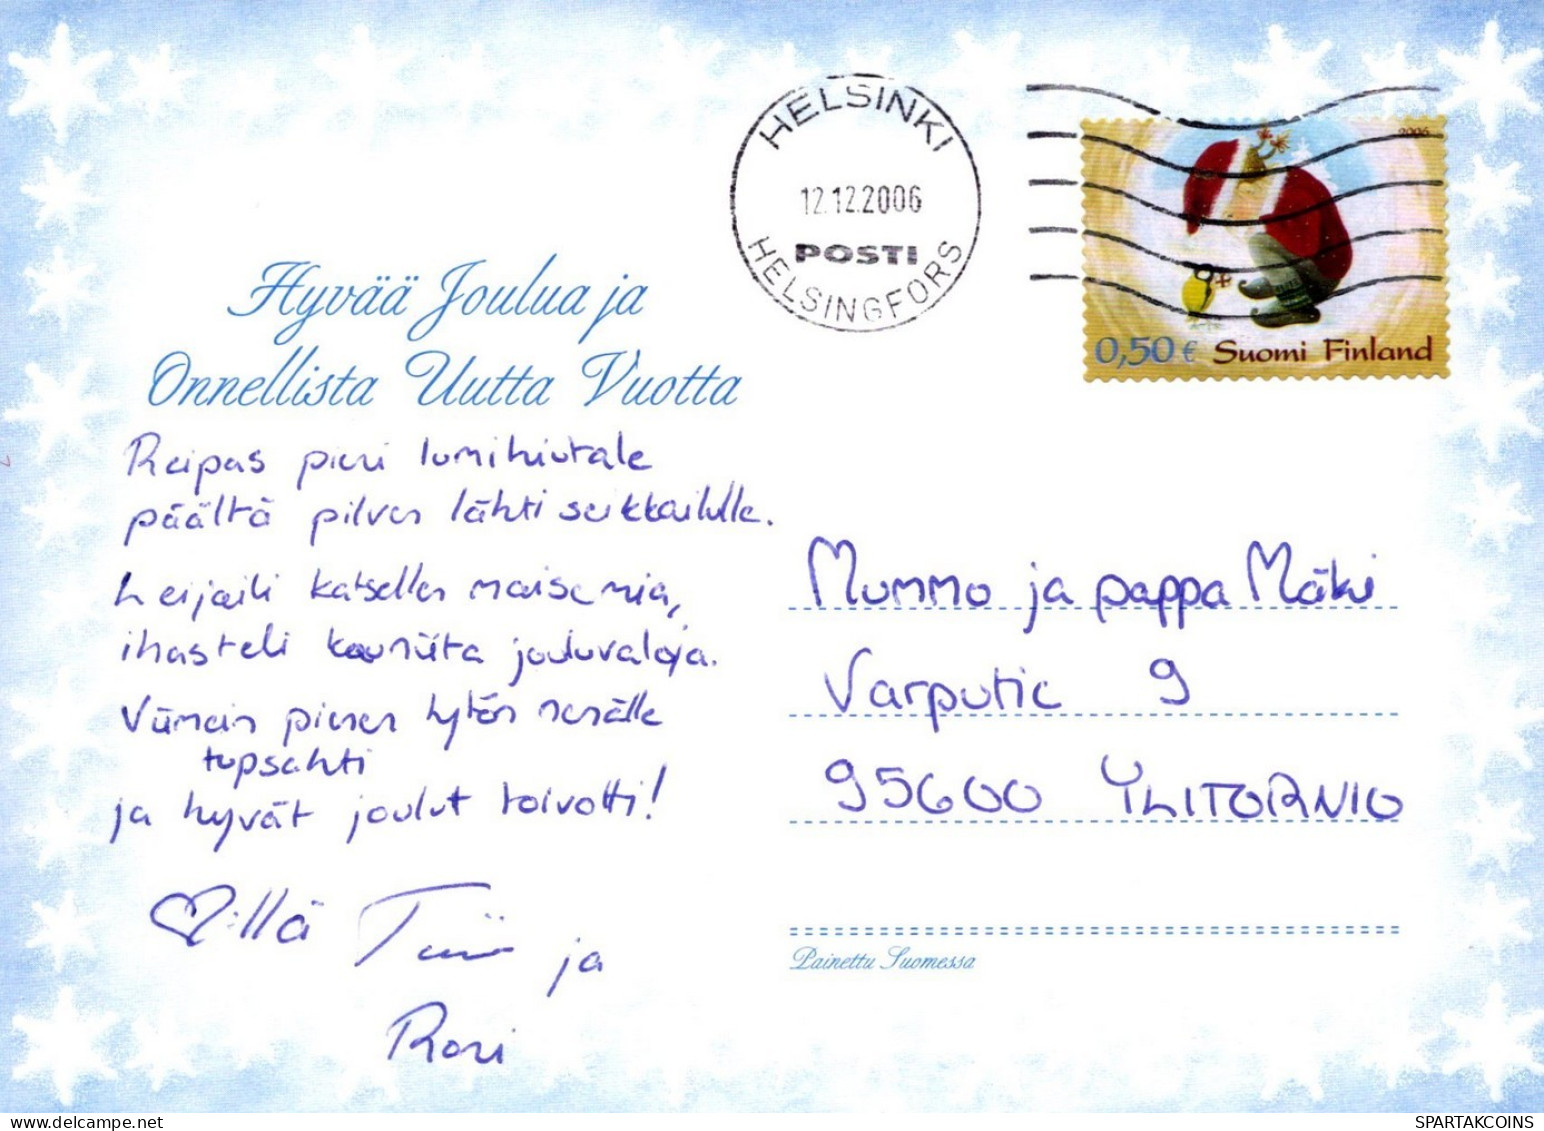 HELSINKI
12.12.2006
POSTI
HELSINGFORS
2006
0,50 € Suomi Finland
Hyvää Joulua ja
Onnellista Uutta Vuotta
Reipas pieni lumihiutale
päältä pilven lähti seikkailulle.
Leijaili katsellen maisemia,
ihasteli kauniita jouluvaloja.
Viimein pienen tytön nenälle
tupsahti
ja hyvät joulut toivotti!
♡:llä Tiina ja
Roni
Mummo ja pappa Mäki
Varputie 9
95600 YLITORNIO
Painettu Suomessa
SPARTAKCOINS